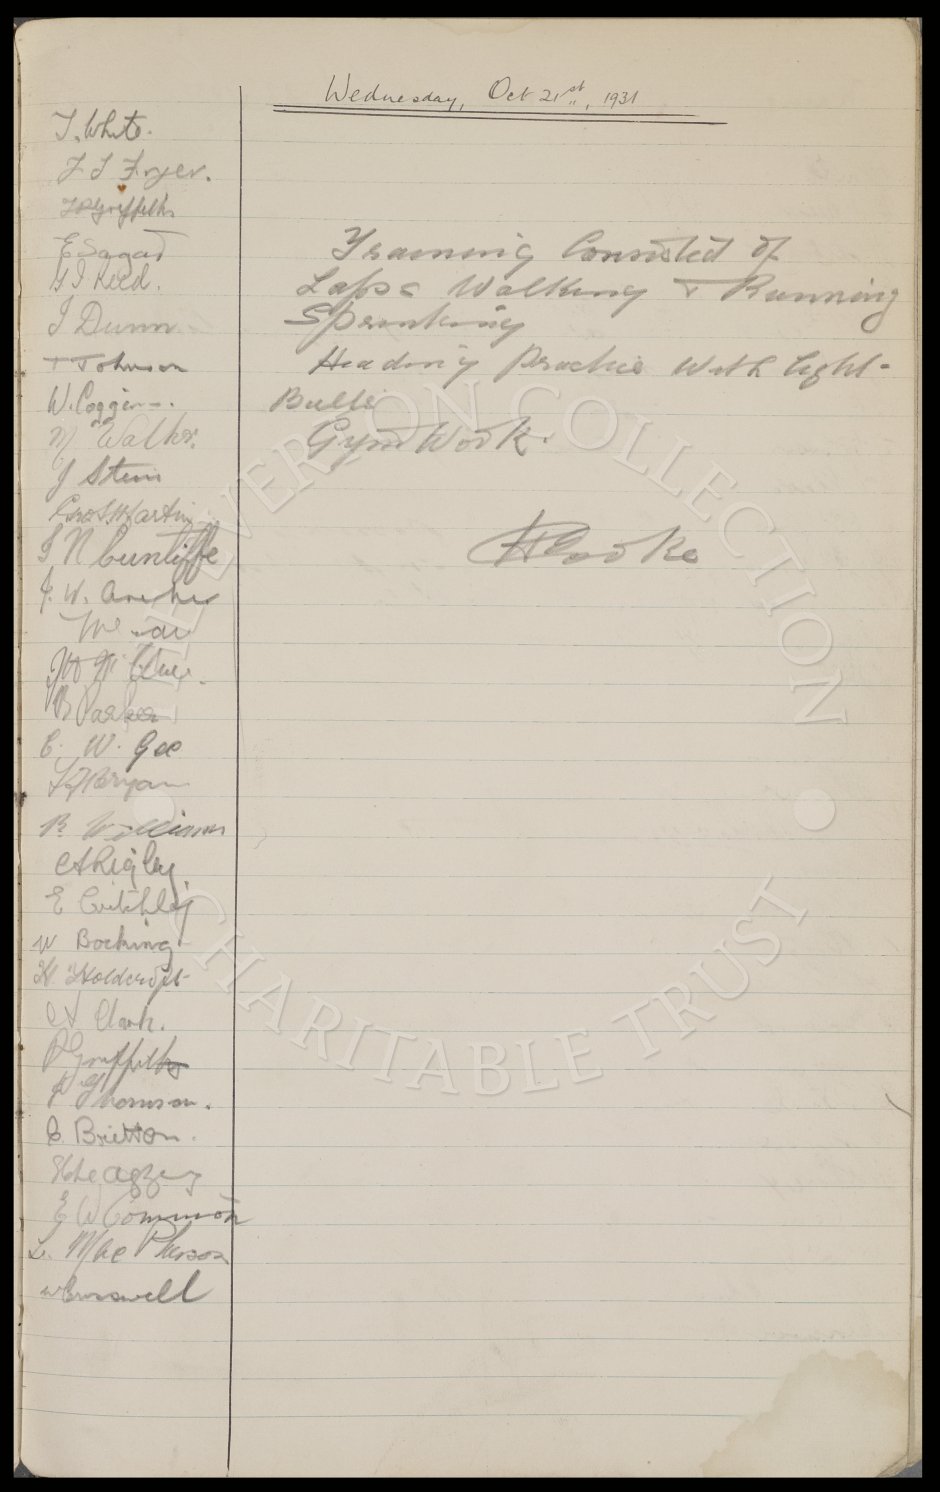 Wednesday, Oct 21st, 1931
T. White.
J J Fryer.
T P Griffiths
E Sagar
G J Reed.
J Dunn
T Johnson
W. Coggins.
N. Walker.
J Stein
Geo S. Martin
J N Cunliffe
J. W. Archer
B Parker
C. W. Gee
Bryan
R Williams
C A Rigby
E Critchley
W Bocking
H Holdcroft
A Clark.
P Griffiths
R Thomson.
C. Britton.
E W Common
L. MacPherson
W Cresswell
Training Consisted of
Laps Walking & Running
Sprinting
Heading Practice With light
Balls
Gym Work.
H Cooke
THE EVERTON COLLECTION
CHARITABLE TRUST